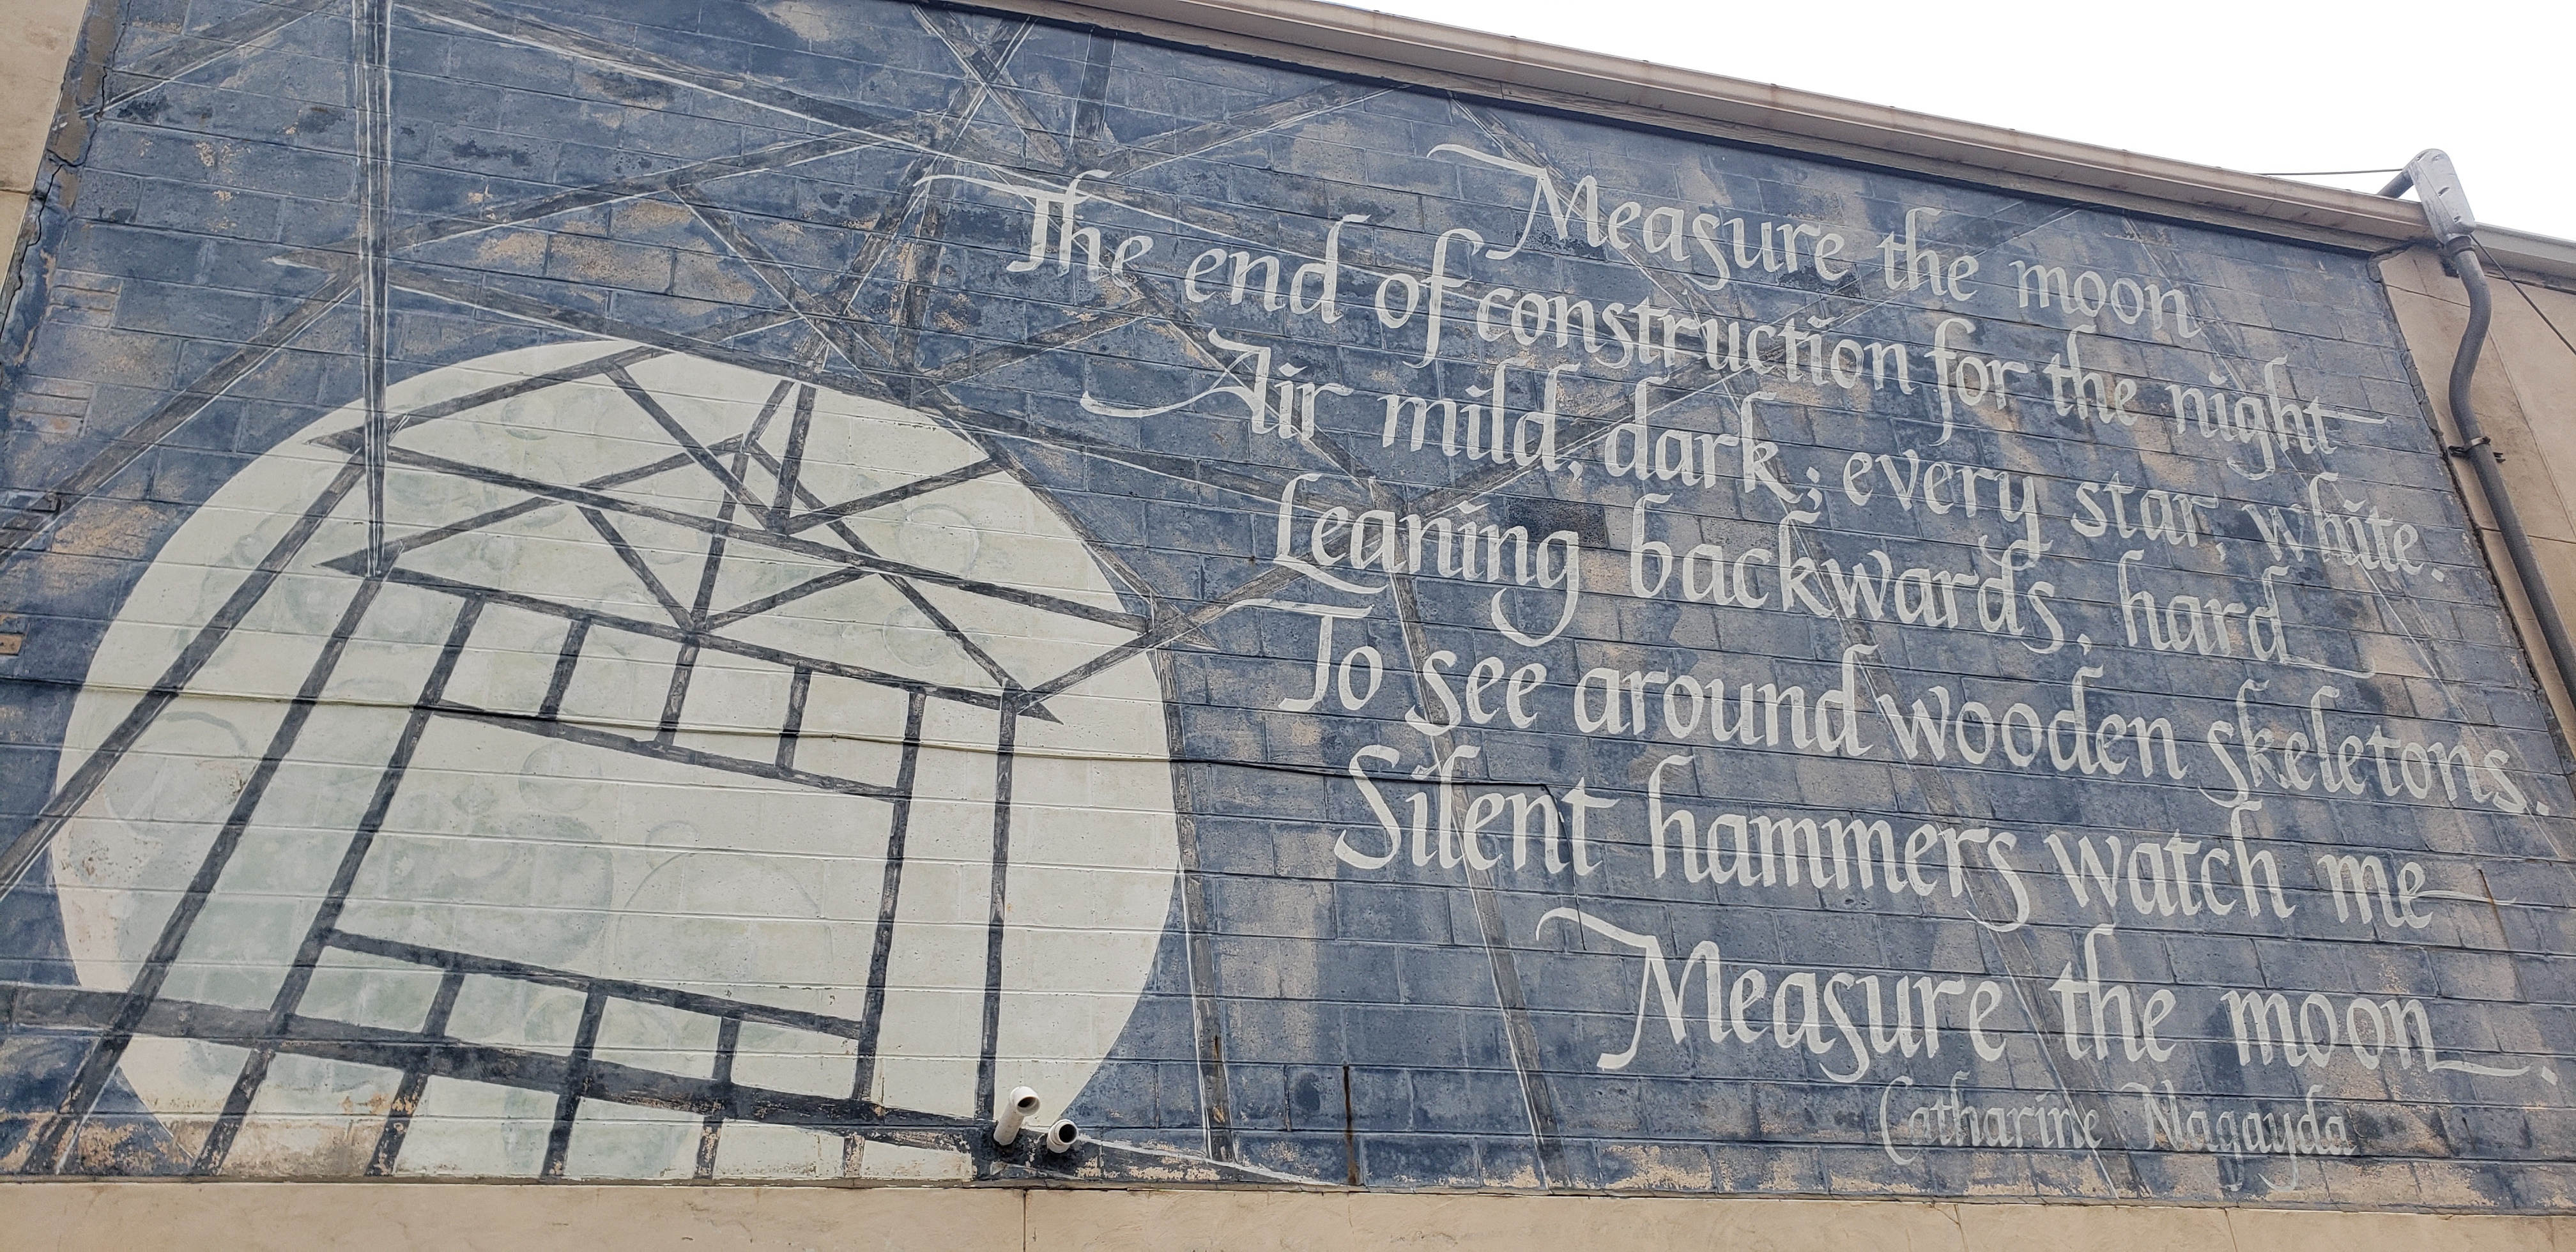 Measure the moon
The end of construction for the night
Air mild, dark; every star, white.
Leaning backwards, hard
To see around wooden skeletons.
Silent hammers watch me
Measure the moon.
Catharine Nagayda